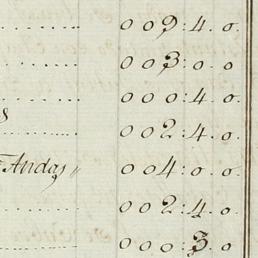 009:4.0.
003:0 0
000:4.0.
002:4.0
Andas 004:0.0.
002:4.0.
000:3.0